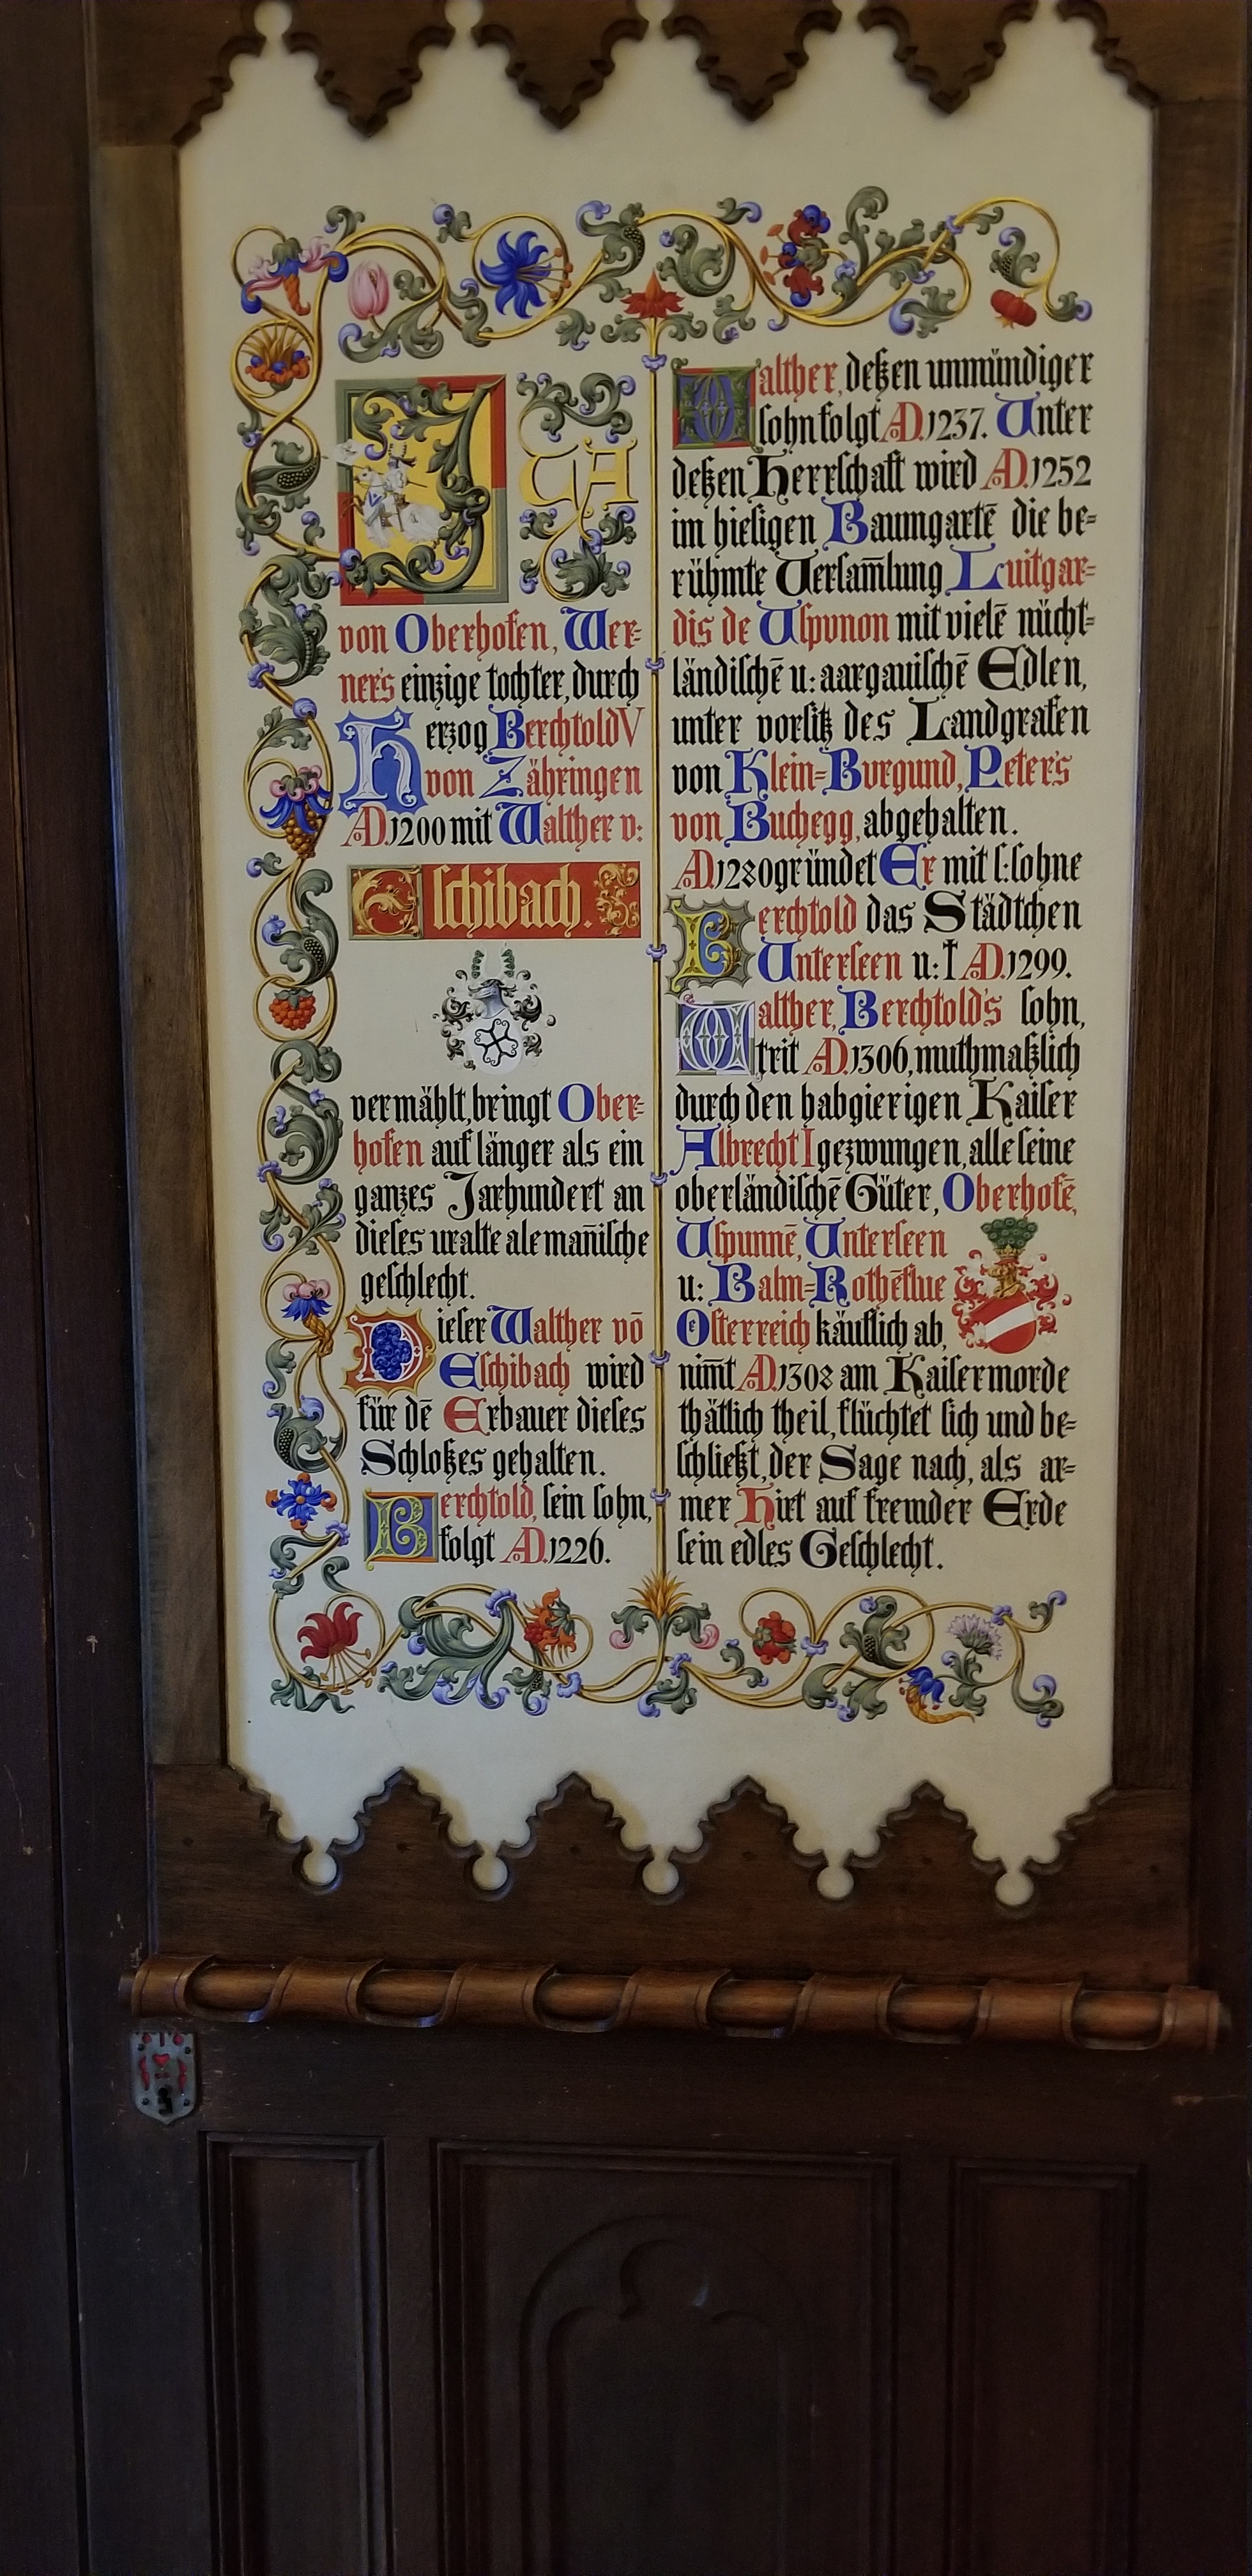 ITA
von Oberhofen, Wer=
ners einzige tochter, durch
Herzog Berchtold V
von Zähringen
AD. 1200 mit Walther v:
Eschibach.
vermählt, bringt Ober=
hofen auf länger als ein
ganzes Jarhundert an
dieses uralte alemañische
geschlecht.
Dieser Walther vō
Eschibach wird
für dē Erbauer dieses
Schloßes gehalten.
Berchtold, sein sohn,
folgt AD. 1226.
Walther, deßen unmündiger
sohn folgt AD. 1237. Unter
deßen Herrschaft wird AD. 1252
im hiesigen Baumgartē die be=
rühmte Versam̄lung Luitgar=
dis de Uspunon mit vielē nücht=
ländischē u: aargauischē Edlen,
unter vorsitz des Landgrafen
von Klein=Burgund, Peter's
von Buchegg, abgehalten.
AD. 1280 gründet Er mit s: sohne
Berchtold das Städtchen
Unterseen u: † AD. 1299.
Walther, Berchtold's sohn,
trit AD. 1306, muthmaßlich
durch den habgierigen Kaiser
Albrecht I gezwungen, alle seine
oberländischē Güter, Oberhofē,
Uspunnē, Unterseen
u: Balm=Rothēflue
Österreich käuflich ab,
nim̄t AD. 1308 am Kaisermorde
thätlich theil, flüchtet sich und be=
schließt, der Sage nach, als ar=
mer Hirt auf fremder Erde
sein edles Geschlecht.